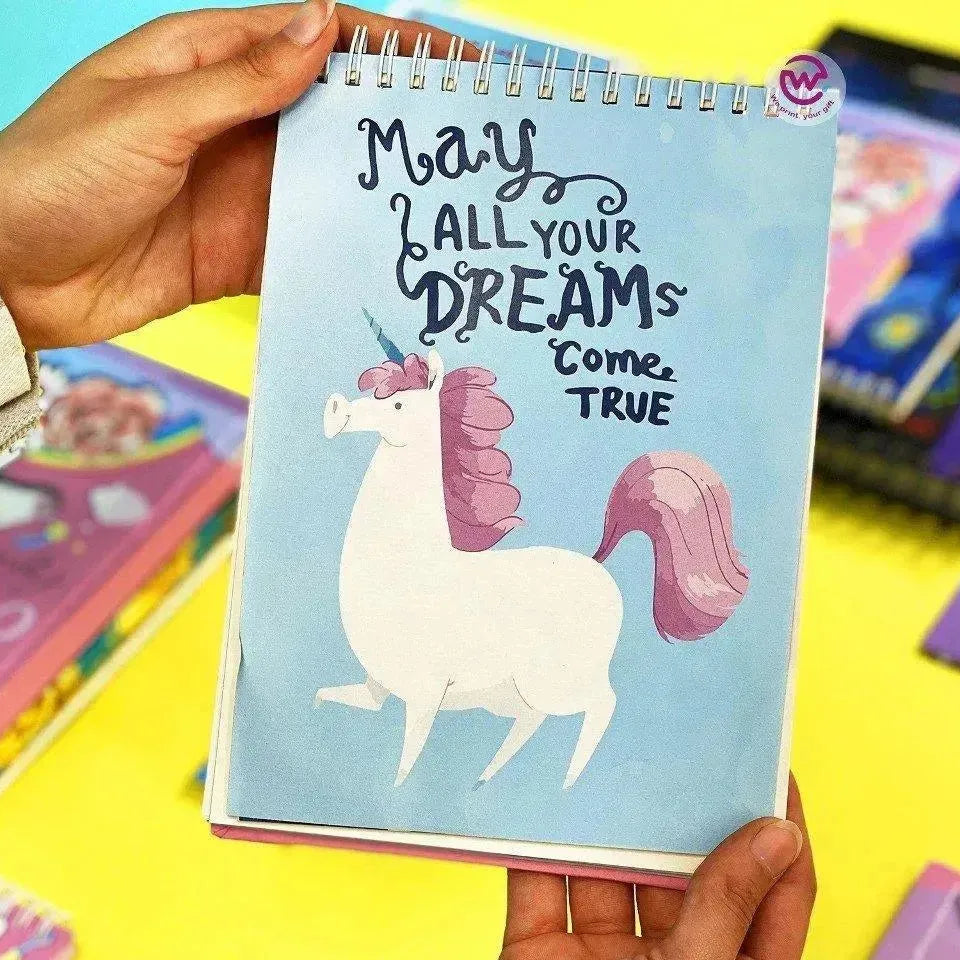 May
ALL YOUR
DREAMS
come
TRUE
W
We print your gift